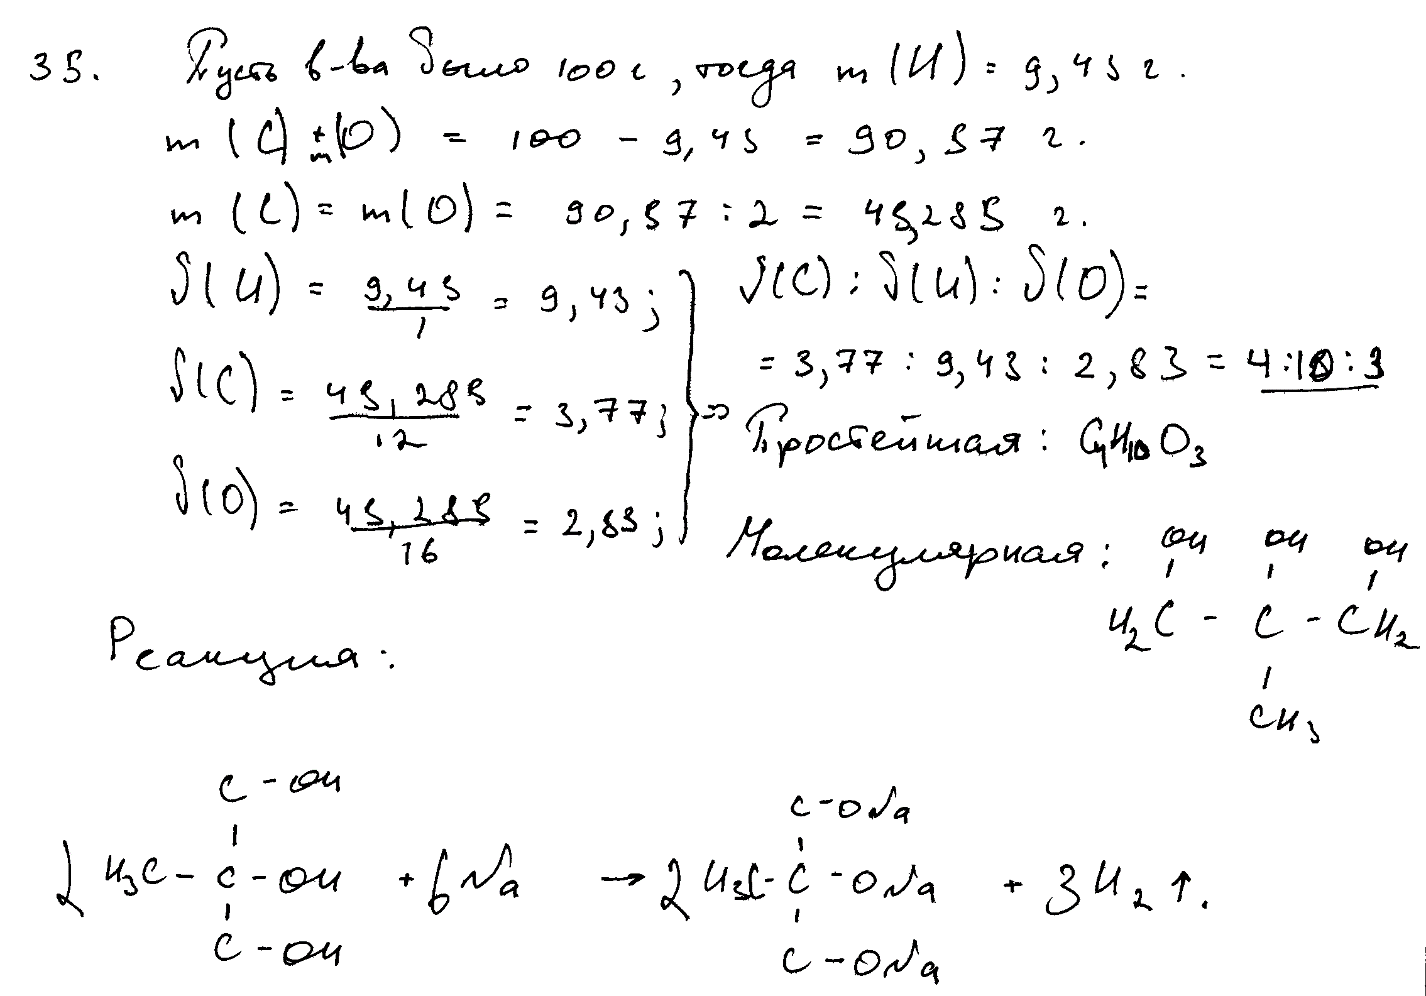 35. Пусть в-ва было 100 г, тогда m(H) = 9,43 г.
m(C) + m(O) = 100 - 9,43 = 90,57 г.
m(C) = m(O) = 90,57 : 2 = 45,285 г.
ν(H) = 9,43/1 = 9,43;
ν(C) = 45,285/12 = 3,77;
ν(O) = 45,285/16 = 2,83;
=> ν(C) : ν(H) : ν(O) =
= 3,77 : 9,43 : 2,83 = 4:10:3
Простейшая: C4H10O3
Молекулярная:
OH OH OH
H2C - C - CH2
CH3
Реакция:
C-OH C-ONa
2 H3C - C - OH + 6Na → 2 H3C - C - ONa + 3H2↑.
C-OH C-ONa